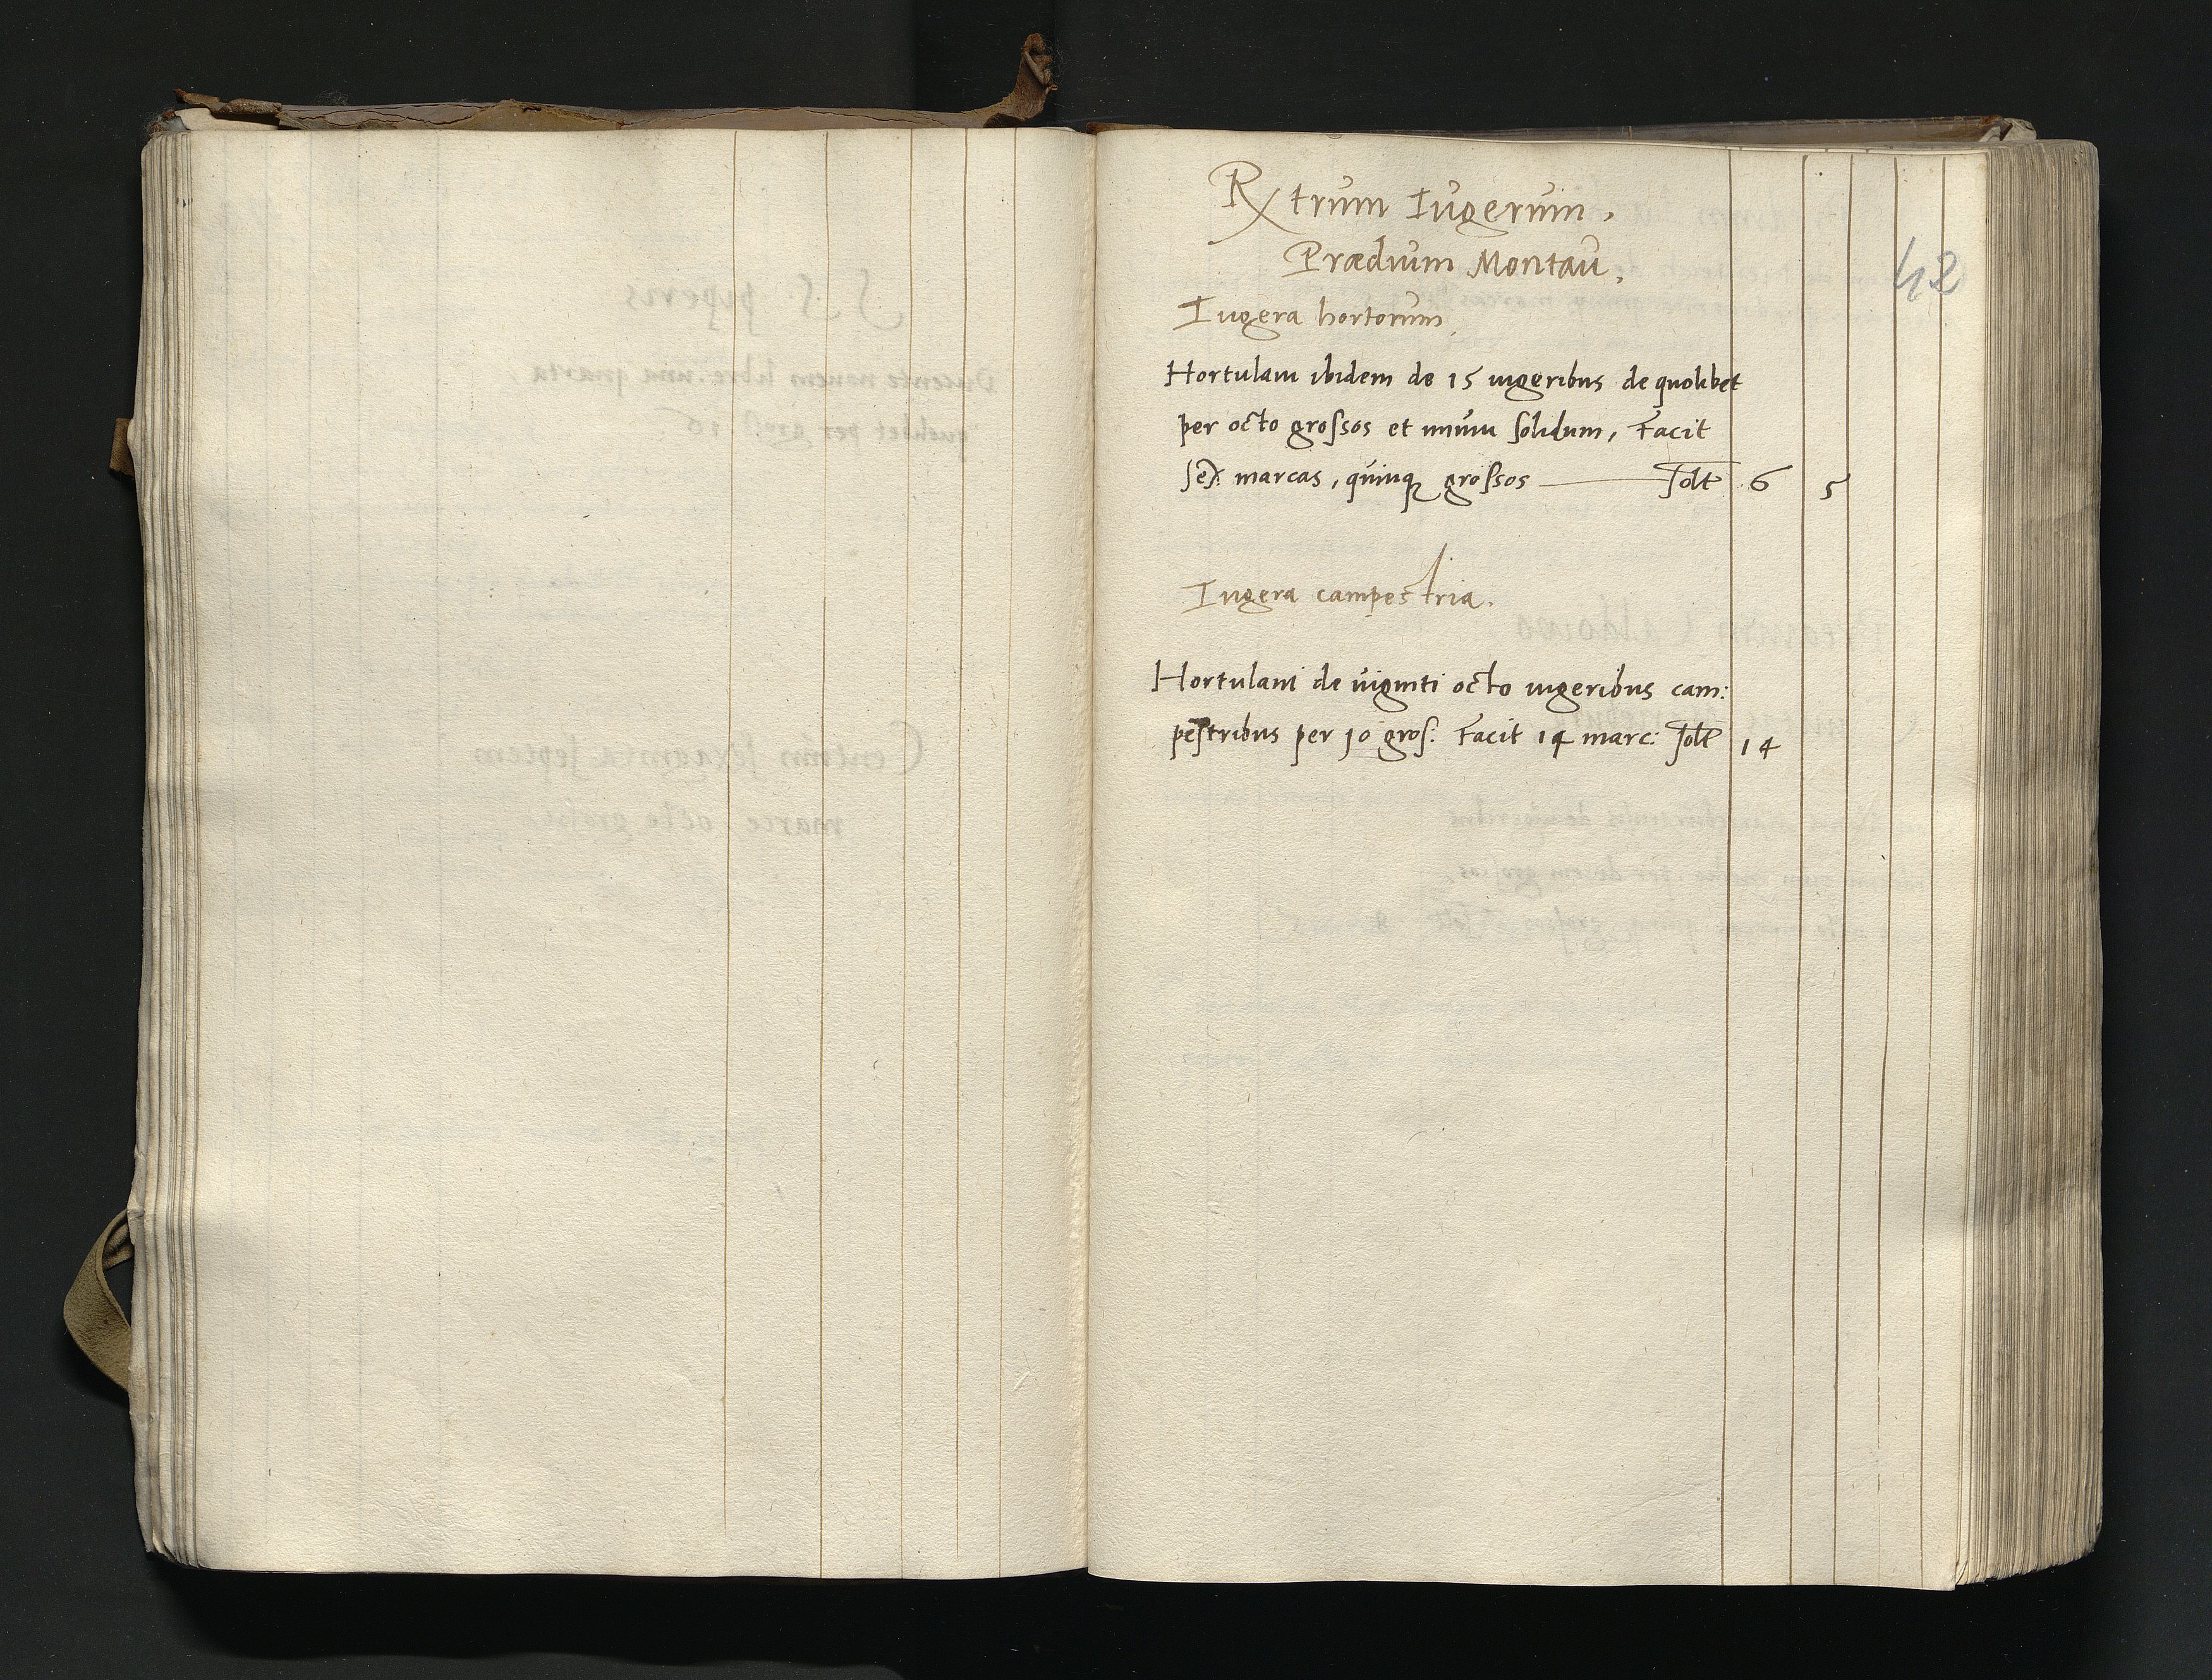 Rx trum Iugerum.
42
Prædium Montau.
Iugera hortorum
Hortulani ibidem de 15 iugeribus de quolibet
per octo grossos et unum solidum, Facit
sex marcas, quinq grossos — solt 6 5
Iugera campestria.
Hortulani de viginti octo iugeribus cam:
pestribus per 10 gros: Facit 14 marc: solt 14